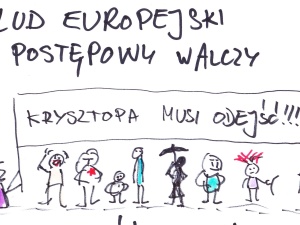 LUD EUROPEJSKI
POSTĘPOWY WALCZY
KRYSZTOPA MUSI ODEJŚĆ!!!